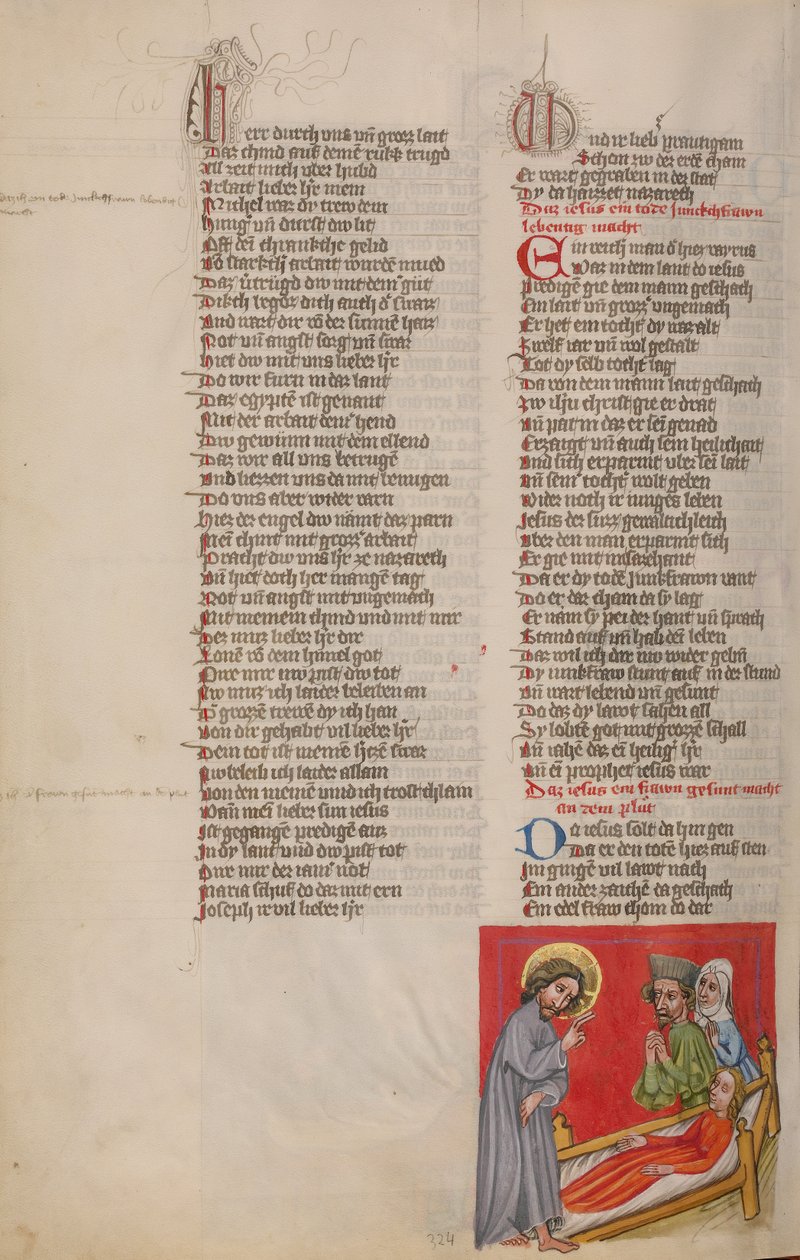 Herr durch uns uñ grozz lait
Daz chind auf demē rukk trugd
All zeit mich uber hubd
Arbait lieber h'r mein
Michel war dy trew dein
Hung' uñ durst dw lit
Offt deī chrankche gelid
Vō starkch arbait wurdē mued
Daz u'trugd dw mit dem' güt
Dikch legdz dich auch d' swar
Und wart dir vō der sunnē haiz
Not uñ angst sorg uñ swar
Hiet dw mit uns lieber h'r
Do wir furn in daz lant
Daz egyptē ist genant
Mit der arbait dein' hend
Dw gewunn mit dem ellend
Daz wir all uns betrugē
Und liezzen uns da mit benugen
Do uns aber wider varn
Hiez der engel dw nāmt daz parn
Meī chint mit grozz' arbait
Pracht dw uns h'r ze nazareth
Uñ hiet doch her mangē tag
Not uñ angst mit ungemach
Mit meinem chind und mit mir
Dez muz lieber h'r dir
Lonē vō dem himel got
Owe mir nw pist dw tot
Nw muz ich laider beleiben an
D' grozzē trewē dy ich han
Von dir gehabt vil lieber h'r
Dein tot ist meinē h'czē swar
Nw beleib ich laider allain
Von den meinē und ich trostchlam
Wañ meī lieber sun iesus
Ist gegangē predigē auz
In dy lant und dw pist tot
Owe mir der iam' not
Maria schuf do daz mit ern
Joseph ir vil lieber h'r
Und ir lieb' prautigam
Schon zw der erde cham
Er wart gegraben in der stat
Dy da haizzet nazareth
Daz iesus ein tode junckchfrawn
lebentig macht
Ein reich man d' hiez yayrus
Waz in dem lant do iesus
Predigē gie dem mann geschach
Ein lait uñ grozz' ungemach
Er het ein tocht' dy waz alt
Zwelf iar uñ wol gestalt
Tot dy selb tocht' lag
Da von dem mann lait geschach
Zw ih'u christ gie er drat
Uñ pat in daz er seī genad
Erzaigt uñ auch sein heilichait
Und sich erparmt uber seī lait
Uñ sein' tocht' wolt geben
Wider noch ir iunges leben
Jesus der suzz gewaltichleich
Uber den man erparmt sich
Er gie mit im sazehant
Da er dy todē Junkfrawn vant
Do er dar cham da sy lag
Er nam sy pei der hant uñ sprach
Stand auf uñ hab deī leben
Daz wil ich dir nw wider gebñ
Dy iunkfraw stunt auf in der stund
Uñ wart lebend uñ gesunt
Do daz dy lawt sahen all
Sy lobtē got mit grozzē schall
Uñ iahē daz eī heilig' h'r
Uñ eī prophet iesus war
Daz iesus ein frawn gesunt macht
an dem plut
Da iesus solt da hin gen
Da er den totē hiez auf sten
Im gingē vil lawt nach
Ein ander zaichē da geschach
Ein edel fraw chom do dar
324